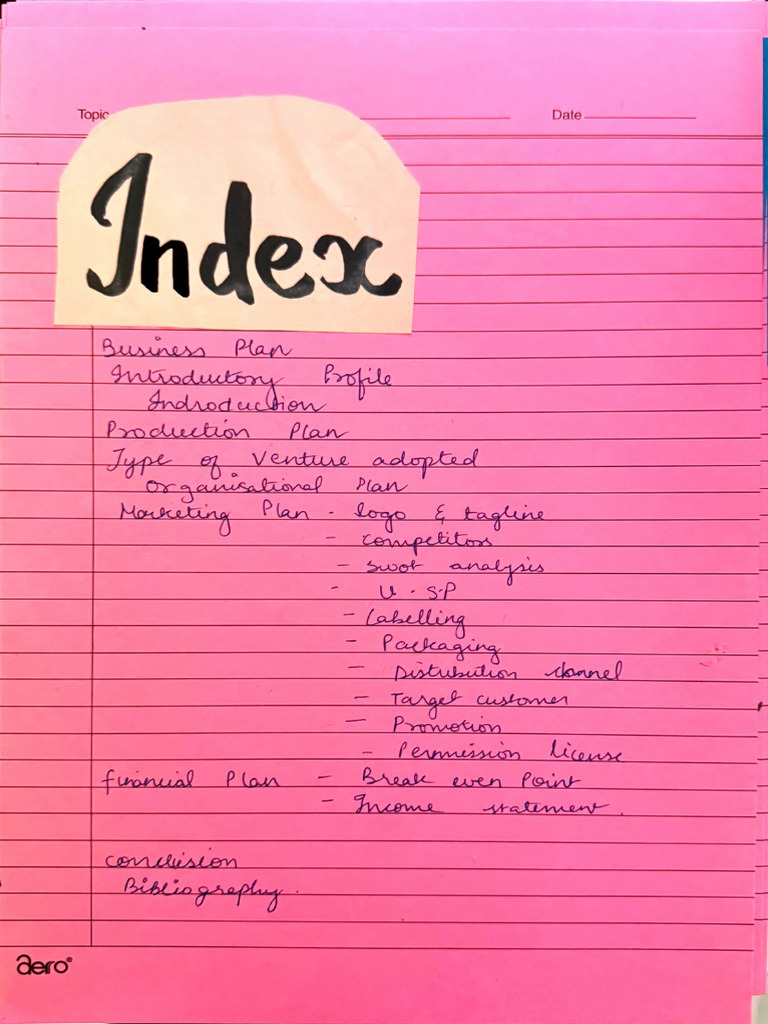 Topic
Date
Index
Business Plan
Introductory Profile
Indroduction
Production Plan
Type of Venture adopted
Organisational Plan
Marketing Plan - logo & tagline
- competitors
- swot analysis
- U.S.P
- Labelling
- Packaging
- Distribution channel
- Target customer
- Promotion
- Permission license
financial Plan - Break even Point
- Income statement.
conclusion
Bibliography.
aero®